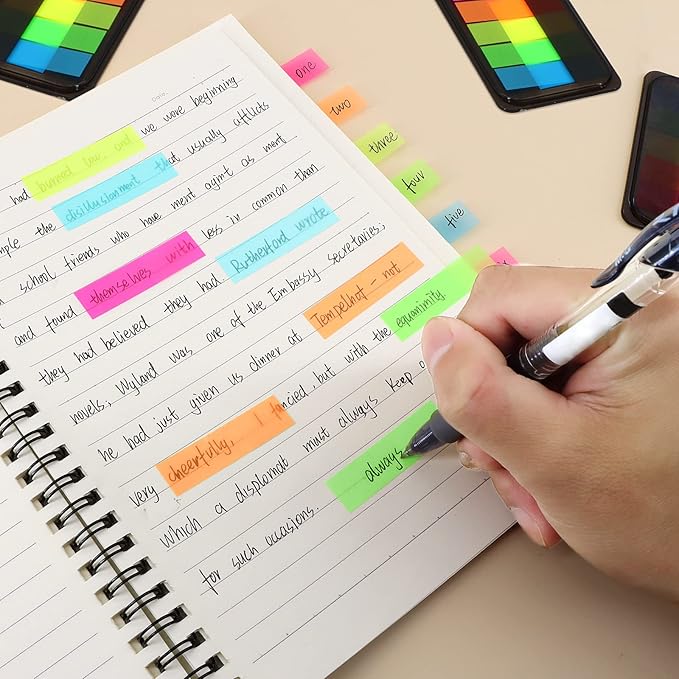 Date.
had burned low, and we were beginning
mple the disillusionment that usually afflicts
school friends who have ment agint as ment
and found themselves with less in common than
they had believed they had Rutherford wrote
novels, Wyland was one of the Embassy secretaries;
he had just given us dinner at Tempelhof - not
very cheerfully, I fancied. but with the equanimity
which a displomat must always keep
for such occasions. always
one
two
three
four
five